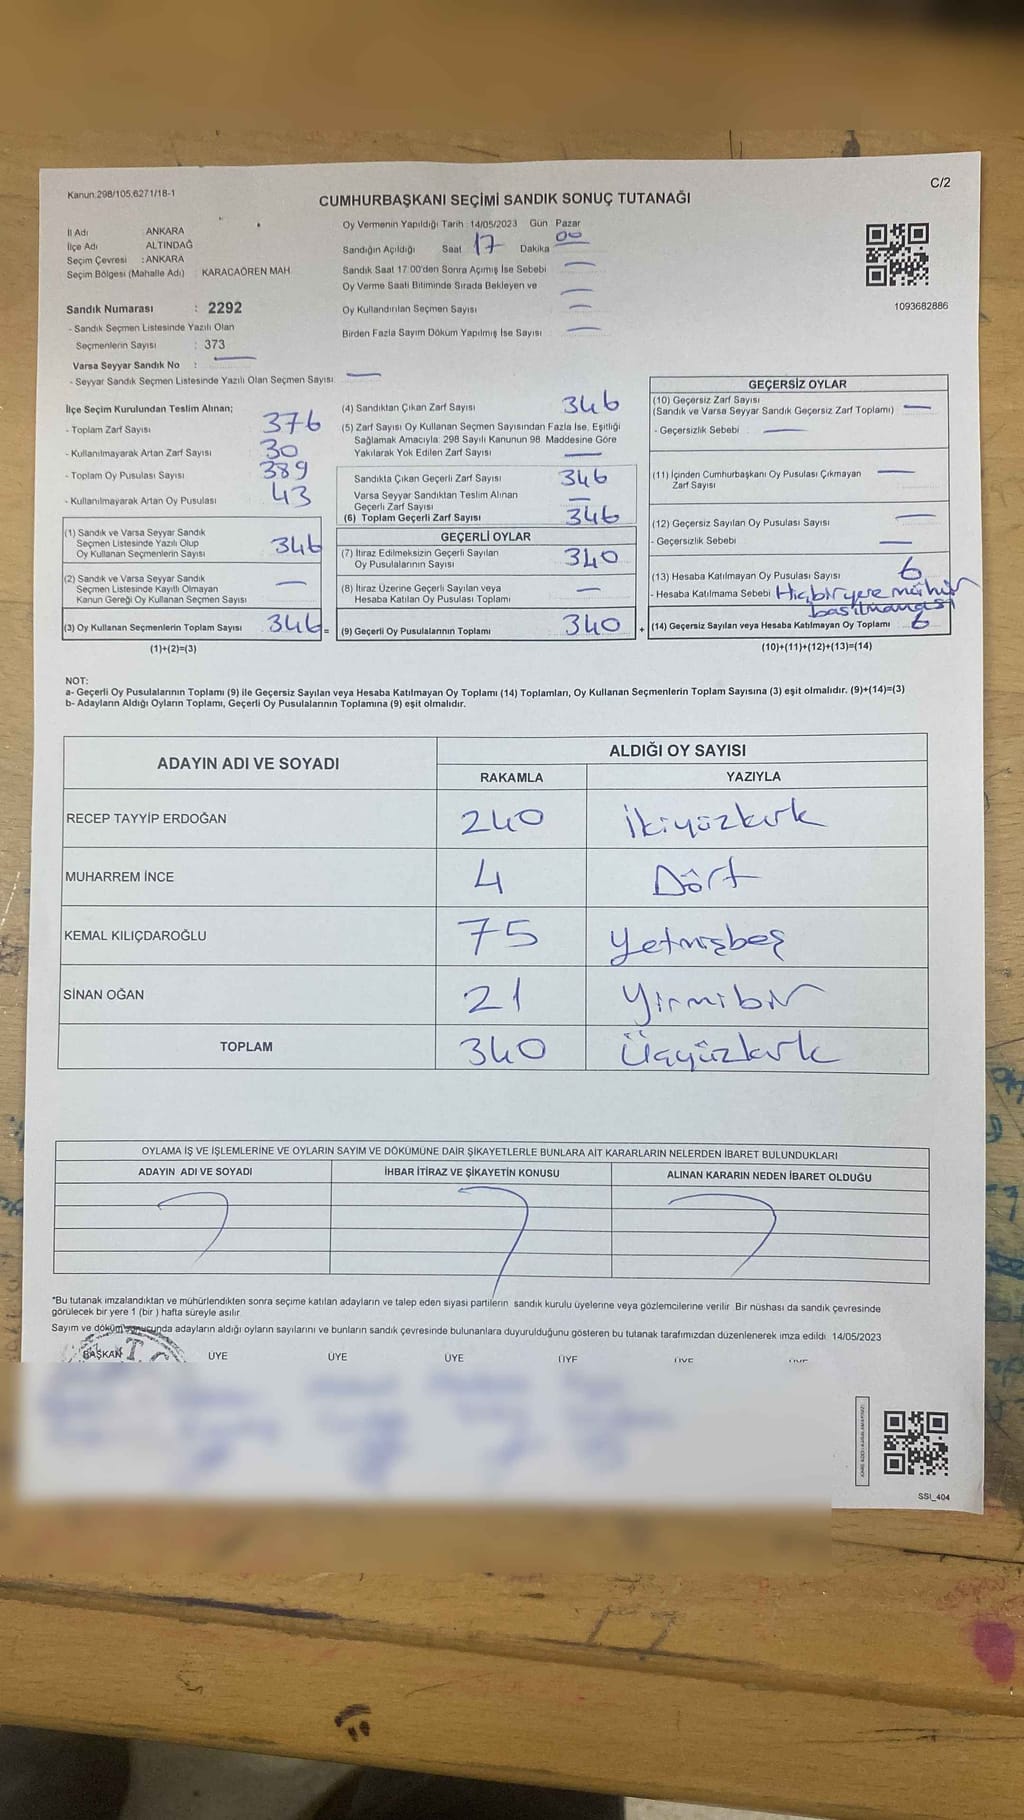 Kanun:298/105,6271/18-1
C/2
CUMHURBAŞKANI SEÇİMİ SANDIK SONUÇ TUTANAĞI
İl Adı : ANKARA
İlçe Adı : ALTINDAĞ
Seçim Çevresi : ANKARA
Seçim Bölgesi (Mahalle Adı) : KARACAÖREN MAH.
Sandık Numarası : 2292
- Sandık Seçmen Listesinde Yazılı Olan
Seçmenlerin Sayısı : 373
Varsa Seyyar Sandık No : —
- Seyyar Sandık Seçmen Listesinde Yazılı Olan Seçmen Sayısı —
Oy Vermenin Yapıldığı Tarih 14/05/2023 Gün Pazar
Sandığın Açıldığı Saat 17 Dakika 00
Sandık Saat 17:00'den Sonra Açımış İse Sebebi —
Oy Verme Saati Bitiminde Sırada Bekleyen ve —
Oy Kullandırılan Seçmen Sayısı —
Birden Fazla Sayım Döküm Yapılmış İse Sayısı —
1093682886
İlçe Seçim Kurulundan Teslim Alınan;
- Toplam Zarf Sayısı 376
- Kullanılmayarak Artan Zarf Sayısı 30
- Toplam Oy Pusulası Sayısı 389
- Kullanılmayarak Artan Oy Pusulası 43
(1) Sandık ve Varsa Seyyar Sandık
Seçmen Listesinde Yazılı Olup
Oy Kullanan Seçmenlerin Sayısı 346
(2) Sandık ve Varsa Seyyar Sandık
Seçmen Listesinde Kayıtlı Olmayan
Kanun Gereği Oy Kullanan Seçmen Sayısı —
(3) Oy Kullanan Seçmenlerin Toplam Sayısı 346 =
(1)+(2)=(3)
(4) Sandıktan Çıkan Zarf Sayısı 346
(5) Zarf Sayısı Oy Kullanan Seçmen Sayısından Fazla İse, Eşitliği
Sağlamak Amacıyla: 298 Sayılı Kanunun 98. Maddesine Göre
Yakılarak Yok Edilen Zarf Sayısı —
Sandıkta Çıkan Geçerli Zarf Sayısı 346
Varsa Seyyar Sandıktan Teslim Alınan
Geçerli Zarf Sayısı —
(6) Toplam Geçerli Zarf Sayısı 346
GEÇERLİ OYLAR
(7) İtiraz Edilmeksizin Geçerli Sayılan
Oy Pusulalarının Sayısı 340
(8) İtiraz Üzerine Geçerli Sayılan veya
Hesaba Katılan Oy Pusulası Toplamı —
(9) Geçerli Oy Pusulalarının Toplamı 340 +
GEÇERSİZ OYLAR
(10) Geçersiz Zarf Sayısı
(Sandık ve Varsa Seyyar Sandık Geçersiz Zarf Toplamı) —
- Geçersizlik Sebebi —
(11) İçinden Cumhurbaşkanı Oy Pusulası Çıkmayan
Zarf Sayısı —
(12) Geçersiz Sayılan Oy Pusulası Sayısı —
- Geçersizlik Sebebi —
(13) Hesaba Katılmayan Oy Pusulası Sayısı 6
- Hesaba Katılmama Sebebi Hiçbir yere mühür
basılmaması
(14) Geçersiz Sayılan veya Hesaba Katılmayan Oy Toplamı 6
(10)+(11)+(12)+(13)=(14)
NOT:
a- Geçerli Oy Pusulalarının Toplamı (9) ile Geçersiz Sayılan veya Hesaba Katılmayan Oy Toplamı (14) Toplamları, Oy Kullanan Seçmenlerin Toplam Sayısına (3) eşit olmalıdır. (9)+(14)=(3)
b- Adayların Aldığı Oyların Toplamı, Geçerli Oy Pusulalarının Toplamına (9) eşit olmalıdır.
ADAYIN ADI VE SOYADI ALDIĞI OY SAYISI
RAKAMLA YAZIYLA
RECEP TAYYİP ERDOĞAN 240 İkiyüzkırk
MUHARREM İNCE 4 Dört
KEMAL KILIÇDAROĞLU 75 Yetmişbeş
SİNAN OĞAN 21 Yirmibir
TOPLAM 340 Üçyüzkırk
OYLAMA İŞ VE İŞLEMLERİNE VE OYLARIN SAYIM VE DÖKÜMÜNE DAİR ŞİKAYETLERLE BUNLARA AİT KARARLARIN NELERDEN İBARET BULUNDUKLARI
ADAYIN ADI VE SOYADI İHBAR İTİRAZ VE ŞİKAYETİN KONUSU ALINAN KARARIN NEDEN İBARET OLDUĞU
*Bu tutanak imzalandıktan ve mühürlendikten sonra seçime katılan adayların ve talep eden siyasi partilerin sandık kurulu üyelerine veya gözlemcilerine verilir. Bir nüshası da sandık çevresinde
görülecek bir yere 1 (bir ) hafta süreyle asılır.
Sayım ve döküm sonucunda adayların aldığı oyların sayılarını ve bunların sandık çevresinde bulunanlara duyurulduğunu gösteren bu tutanak tarafımızdan düzenlenerek imza edildi. 14/05/2023
BAŞKAN ÜYE ÜYE ÜYE ÜYE ÜYE ÜYE
T.C.
SSI_404